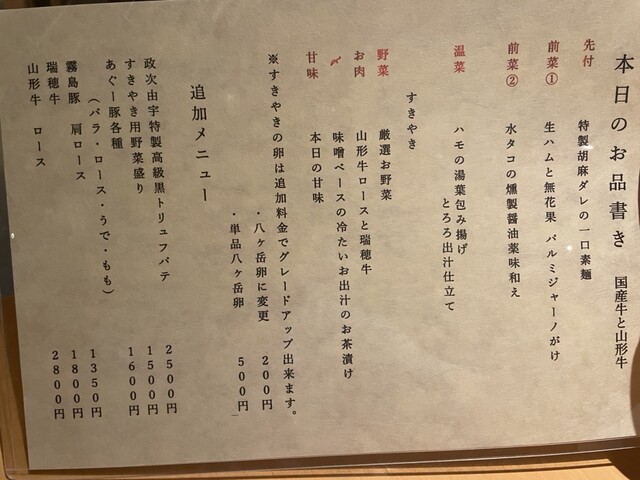 本日のお品書き 国産牛と山形牛
先付 特製胡麻ダレの一口素麺
前菜① 生ハムと無花果 パルミジャーノがけ
前菜② 水タコの燻製醤油薬味和え
温菜 ハモの湯葉包み揚げ
とろろ出汁仕立て
すきやき
野菜 厳選お野菜
お肉 山形牛ロースと瑞穂牛
〆 味噌ベースの冷たいお出汁のお茶漬け
甘味 本日の甘味
※すきやきの卵は追加料金でグレードアップ出来ます。
・八ヶ岳卵に変更 200円
・単品八ヶ岳卵 500円
追加メニュー
政次由宇特製高級黒トリュフパテ 2500円
すきやき用野菜盛り 1500円
あぐー豚各種 1600円
（バラ・ロース・うで・もも）
霧島豚 肩ロース 1350円
瑞穂牛 1800円
山形牛 ロース 2800円